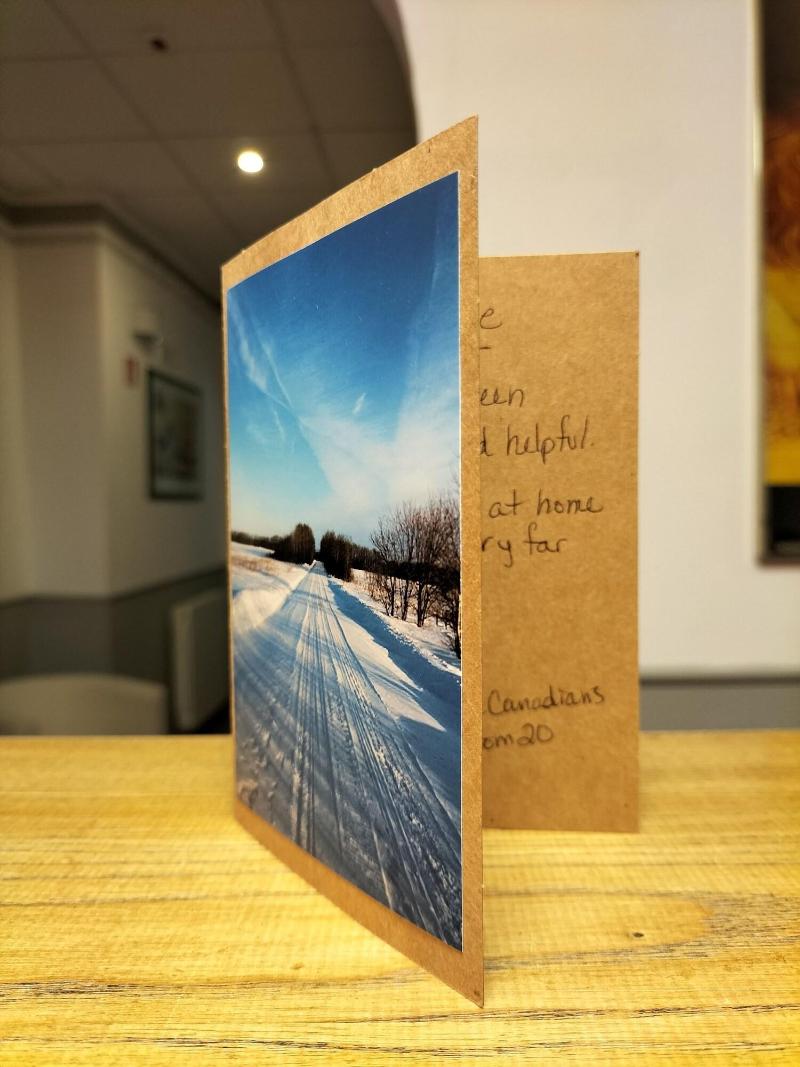 e
een
d helpful.
at home
ry far
Canadians
om 20